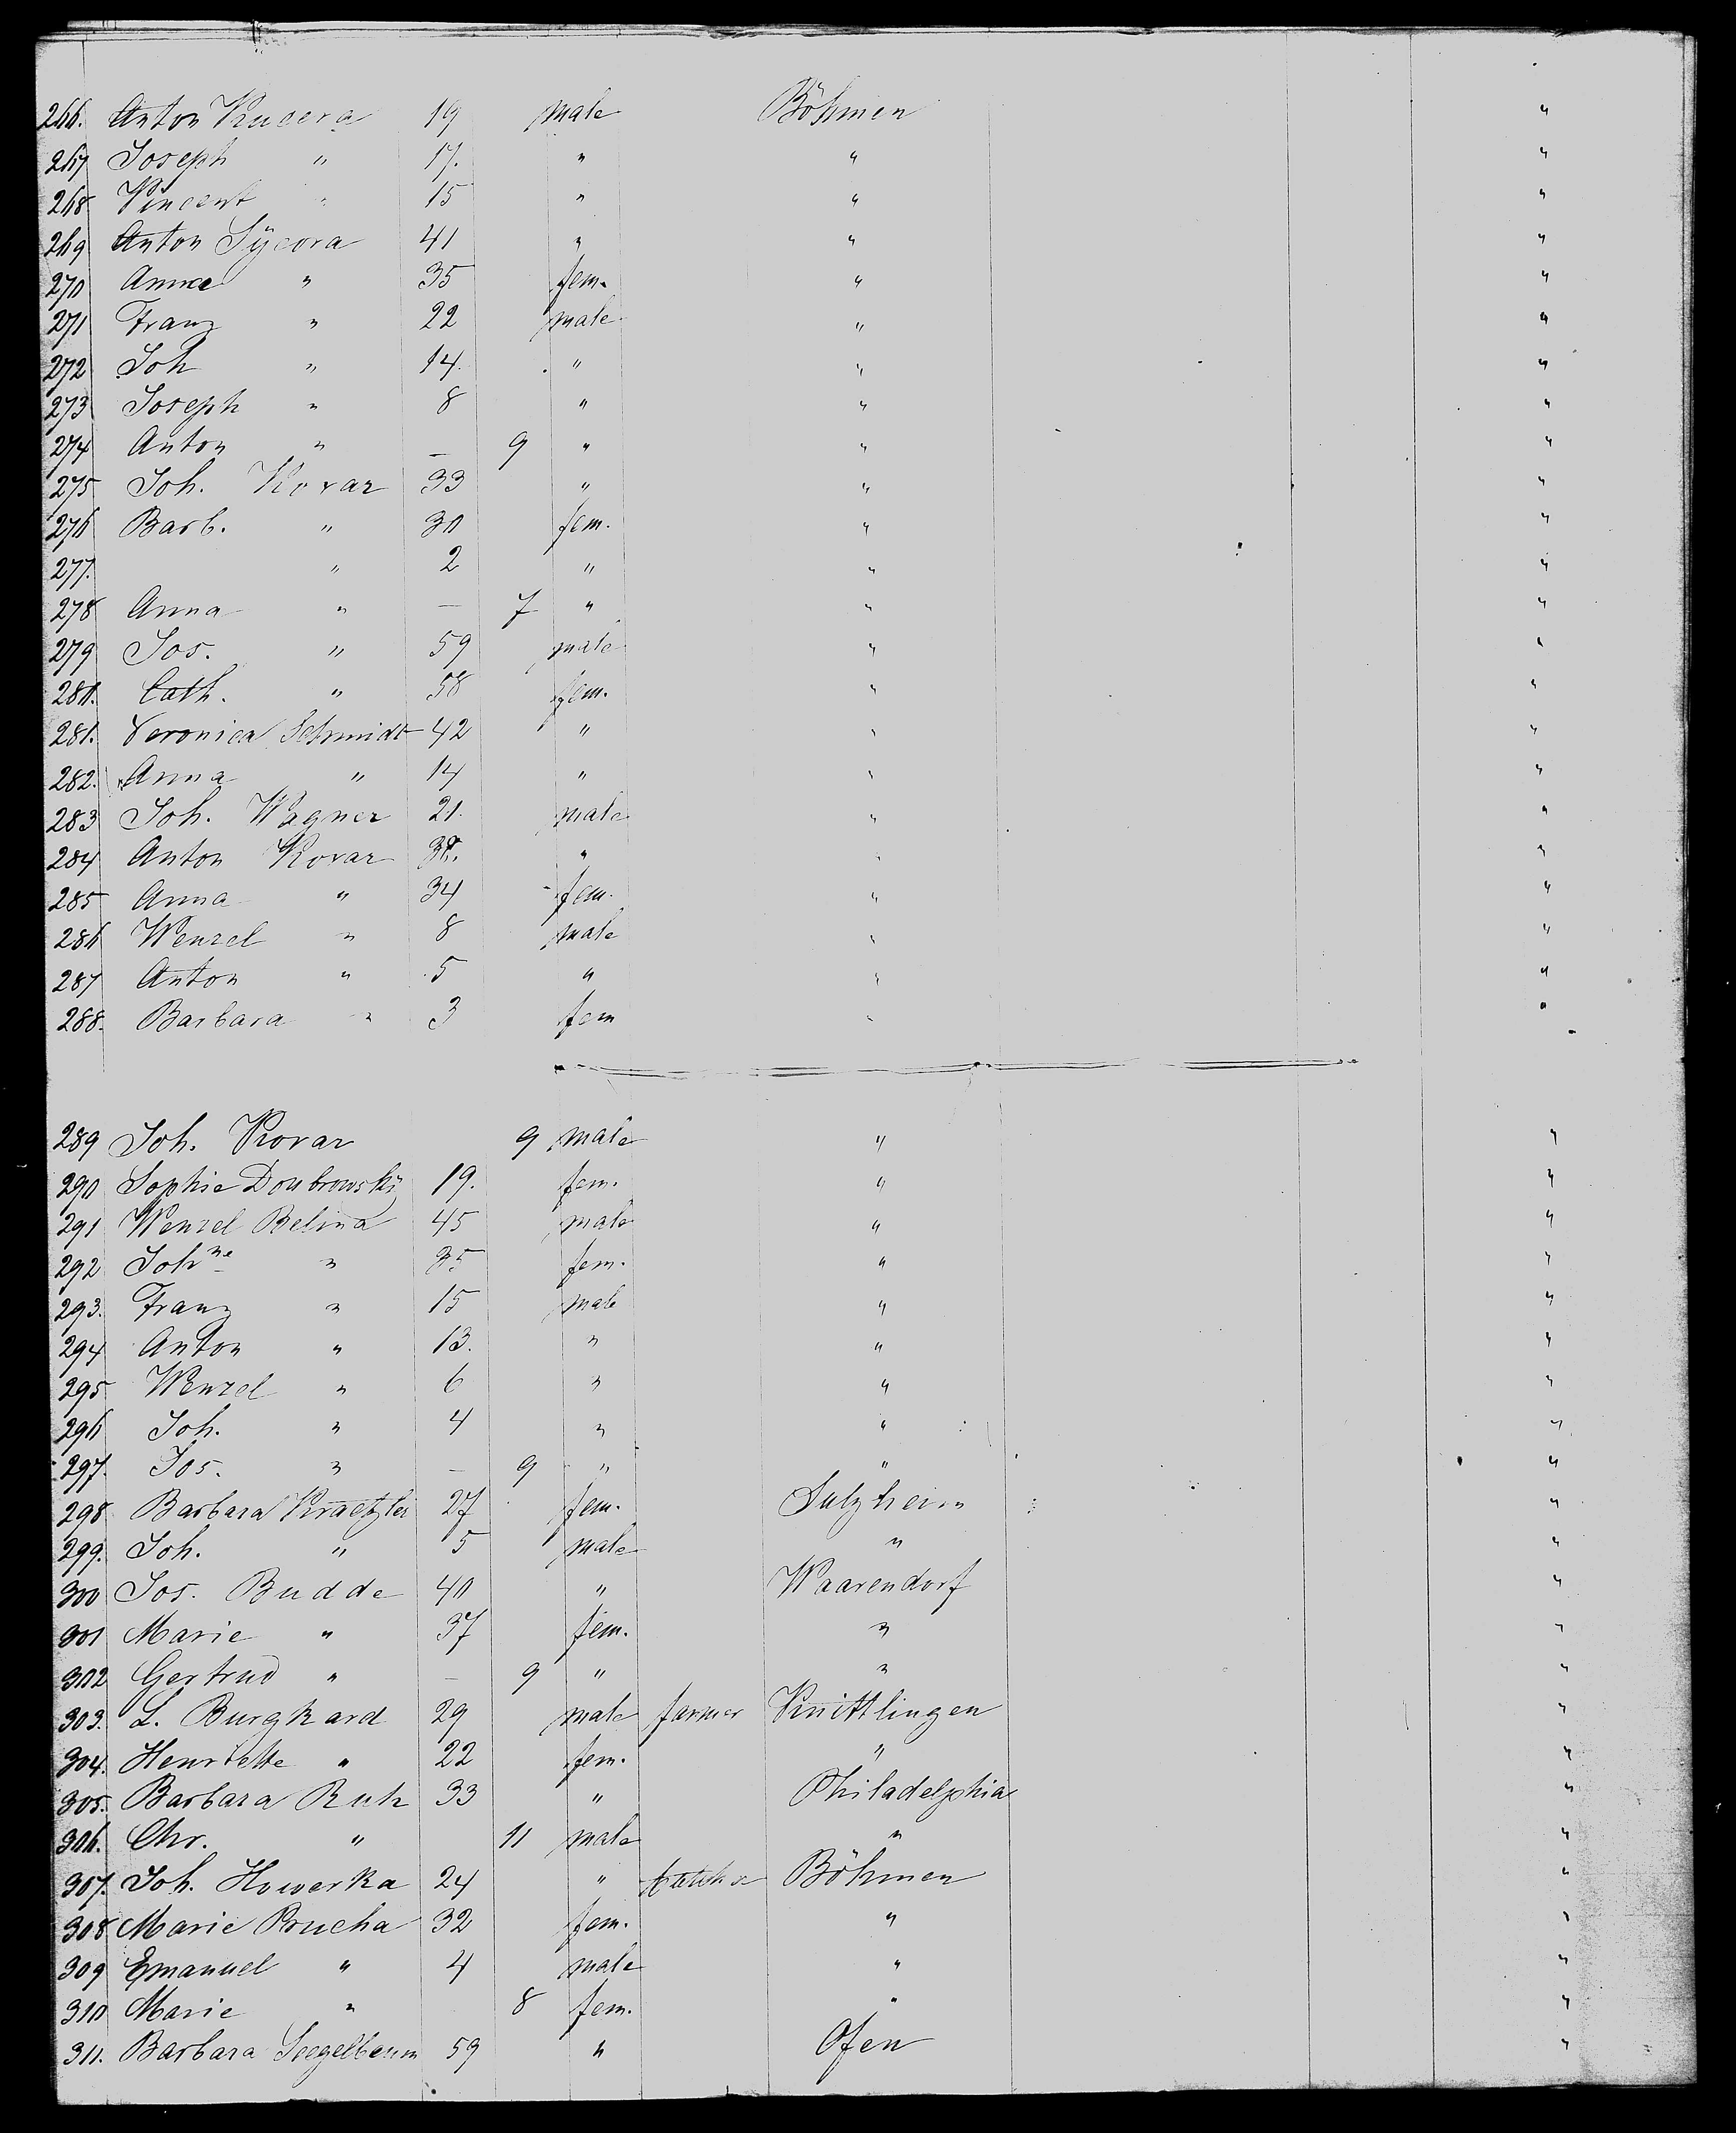 266. Anton Kucera 19 male Böhmen "
267 Joseph " 17. " " "
268 Vincent " 15 " " "
269 Anton Sÿcora 41 " " "
270 Anna " 35 fem. " "
271 Franz " 22 male " "
272 Joh " 14. " " "
273 Joseph " 8 " " "
274 Anton " — 9 " " "
275 Joh. Kovar 33 " " "
276 Barb. " 30 fem. " "
277. " 2 " " "
278 Anna " — 7 " " "
279 Jos. " 59 male " "
280. Cath. " 58 fem. " "
281. Veronica Schmidt 42 " " "
282. Anna " 14 " " "
283 Joh. Wagner 21. male " "
284 Anton Kovar " " "
285 Anna " 34 fem. " "
286 Wenzel " 8 male " "
287 Anton " 5 " " "
288. Barbara " 3 fem " "
289 Joh. Kovar 9 male " "
290 Sophie Doubrowskÿ 19. fem. " "
291 Wenzel Belina 45 male " "
292 Johne " 35 fem. " "
293. Franz " 15 male " "
294 Anton " 13. " " "
295 Wenzel " 6 " " "
296 Joh. " 4 " " "
297. Jos. " — 9 " " "
298 Barbara 27 fem. Sulzheim "
299. Joh. " 5 male " "
300 Jos. Budde 40 " Waarendorf "
301 Marie " 37 fem. " "
302 Gertrud " — 9 " " "
303. L. Burgkard 29 male farmer Knittlingen "
304. Henriette " 22 fem. " "
305. Barbara Ruh 33 " Philadelphia "
306. Chr. " 11 male " "
307. Joh. Howerka 24 " Böhmen "
308 Marie Prucha 32 fem. " "
309 Emanuel " 4 male " "
310 Marie " 8 fem. " "
311. Barbara Seegelbaum 59 " Ofen "